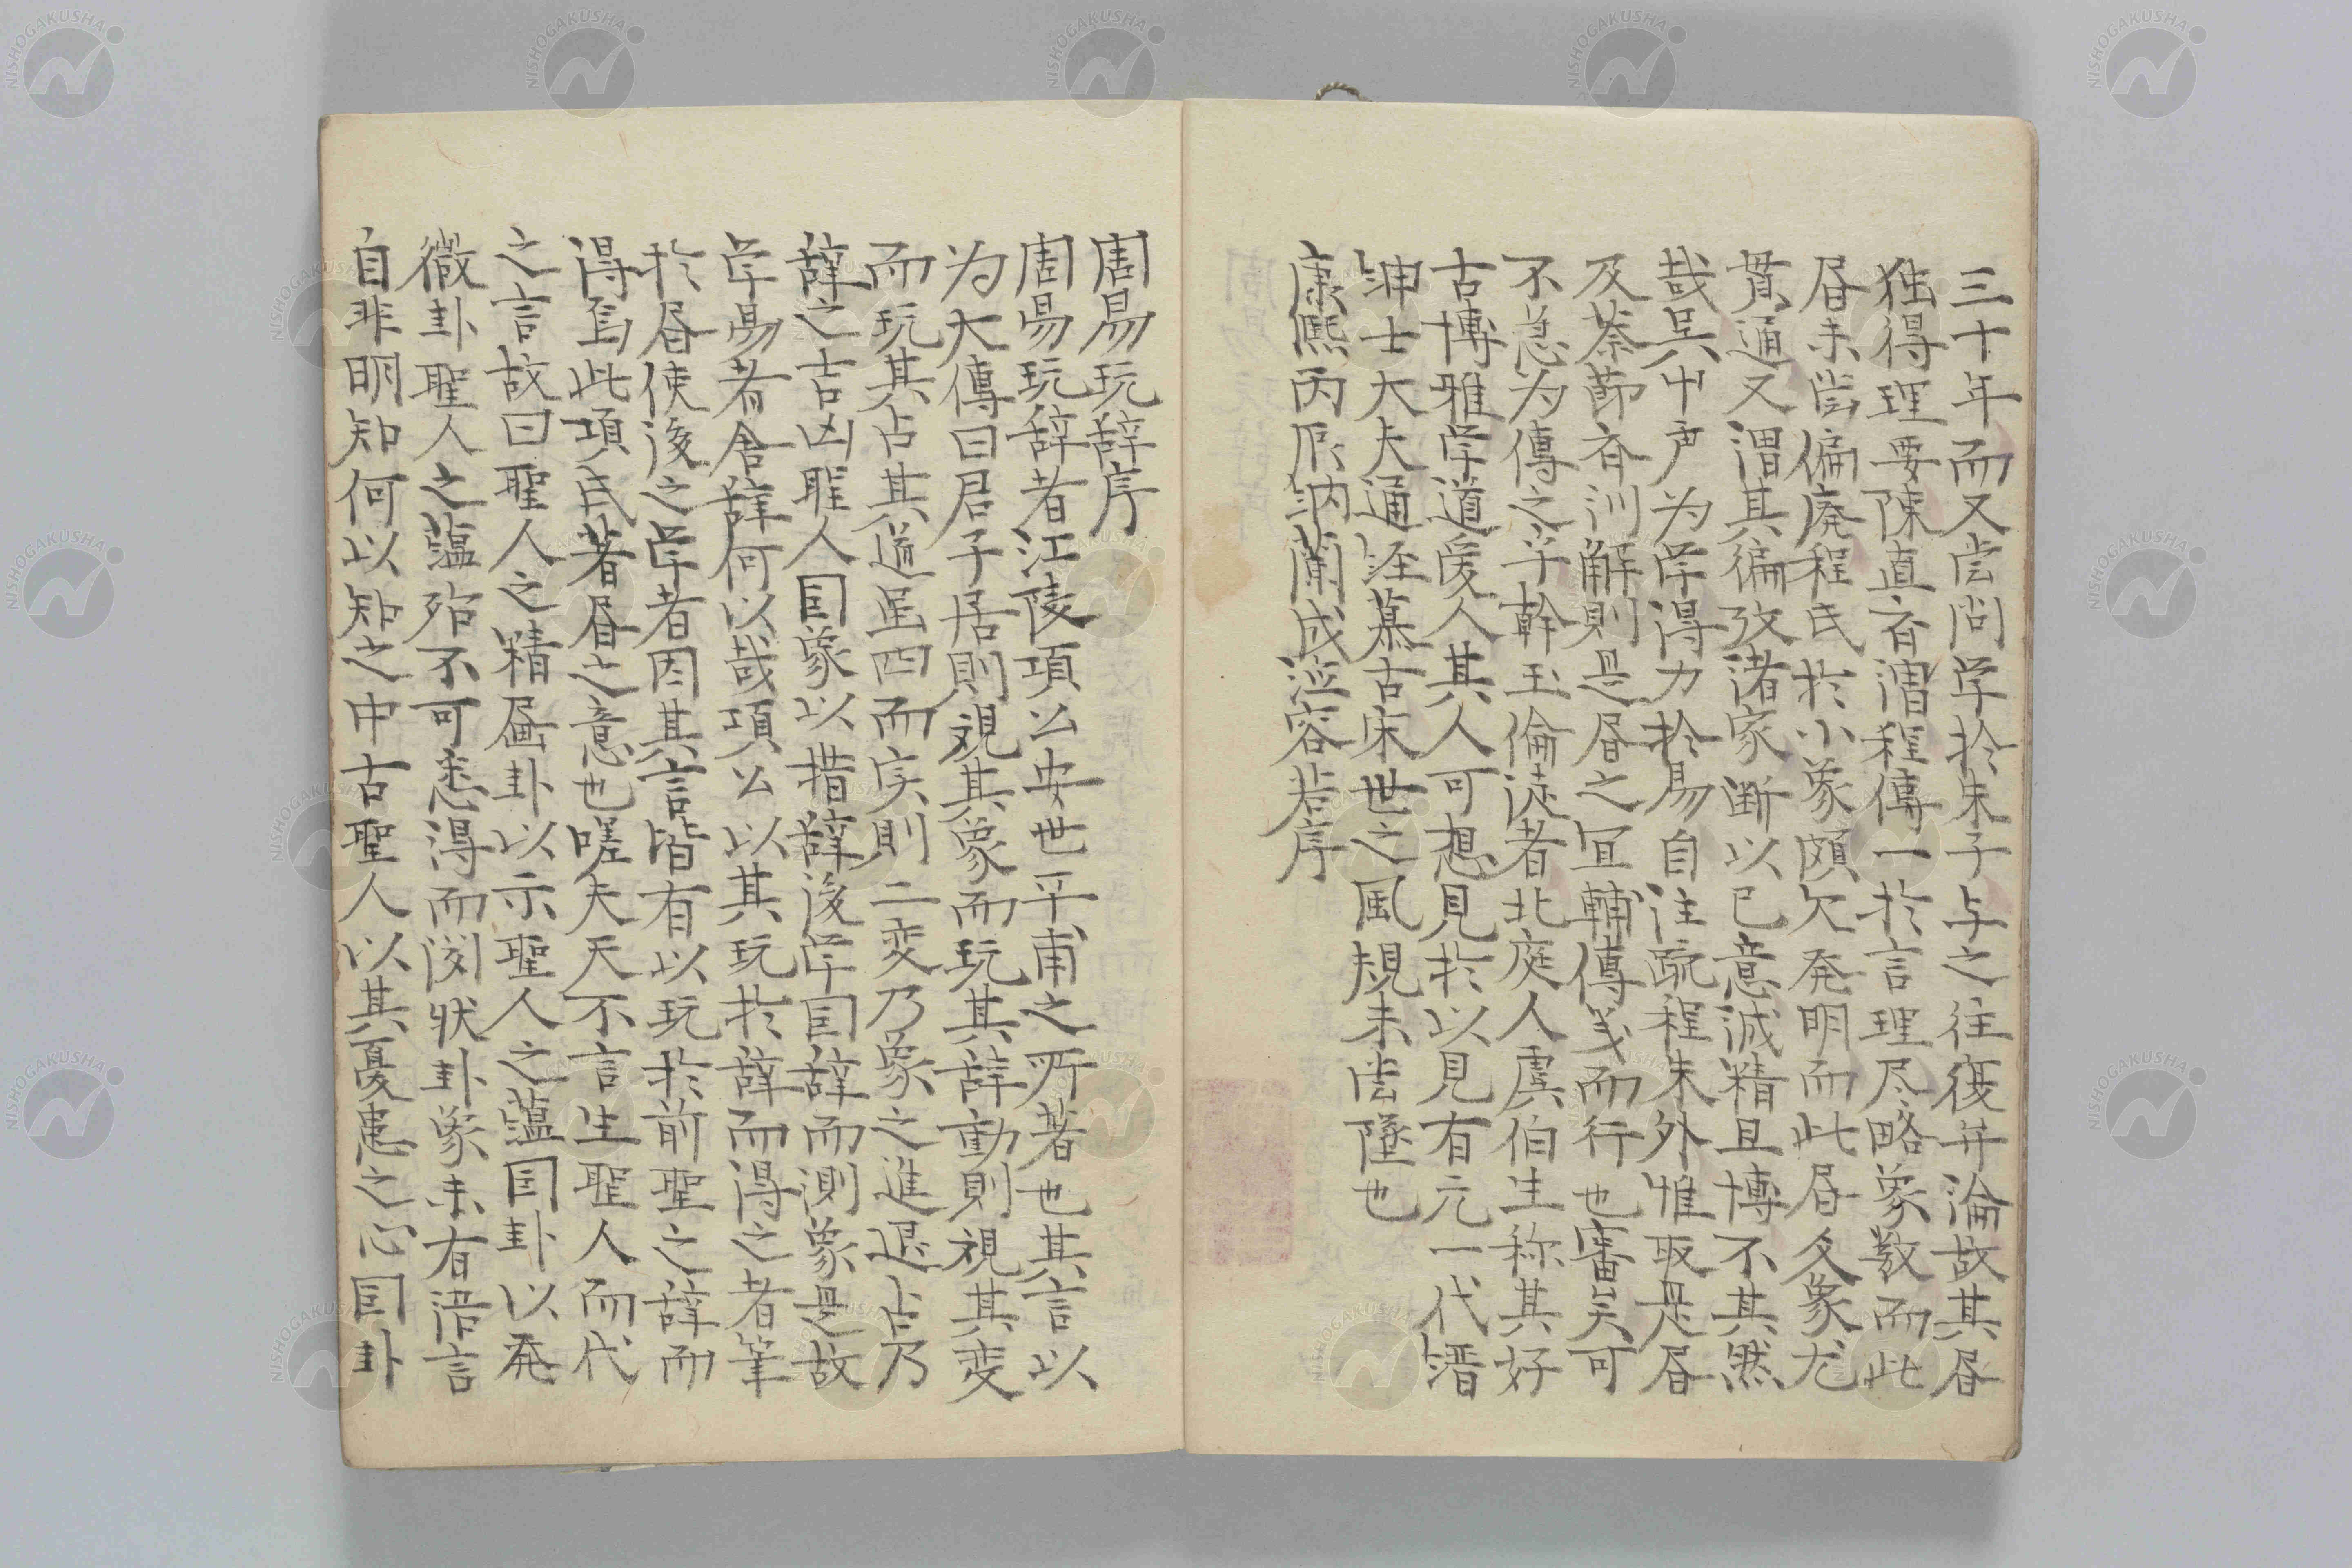 三十年而又尝问学於朱子与之往復弁論故其昏
独得理要陳直斉謂程傳一於言理尽略象数而此
昏未尝偏廃程氏於小象頗欠発明而此昏爻象尤
貫通又謂其徧攷諸家断以己意誠精且博不其然
哉呉中声为学得力於易自注疏程朱外惟取是昏
及蔡節斉訓解則是昏之宜輔傳义而行也審矣可
不急为傳之乎幹玉倫徒者北庭人虞伯生称其好
古博雅学道爱人其人可想見於以見有元一代縉
紳士大夫通経慕古宋世之風規未尝墜也
康熙丙辰納蘭成徳容若序
周易玩辞序
周易玩辞者江陵項公安世平甫之所著也其言以
为大傳曰君子居則視其象而玩其辞動則視其変
而玩其占其道虽四而实則二変乃象之進退占乃
辞之吉凶聖人因象以措辞後学因辞而測象是故
学易者舍辞何以哉項公以其玩於辞而得之者筆
於昏使後之学者因其言皆有以玩於前聖之辞而
得焉此項氏著昏之意也嗟夫天不言生聖人而代
之言故曰聖人之精画卦以示聖人之蘊因卦以発
微卦聖人之蘊殆不可悉得而闵狀卦象未有语言
自非明知何以知之中古聖人以其憂患之心因卦
NISHOGAKUSHA